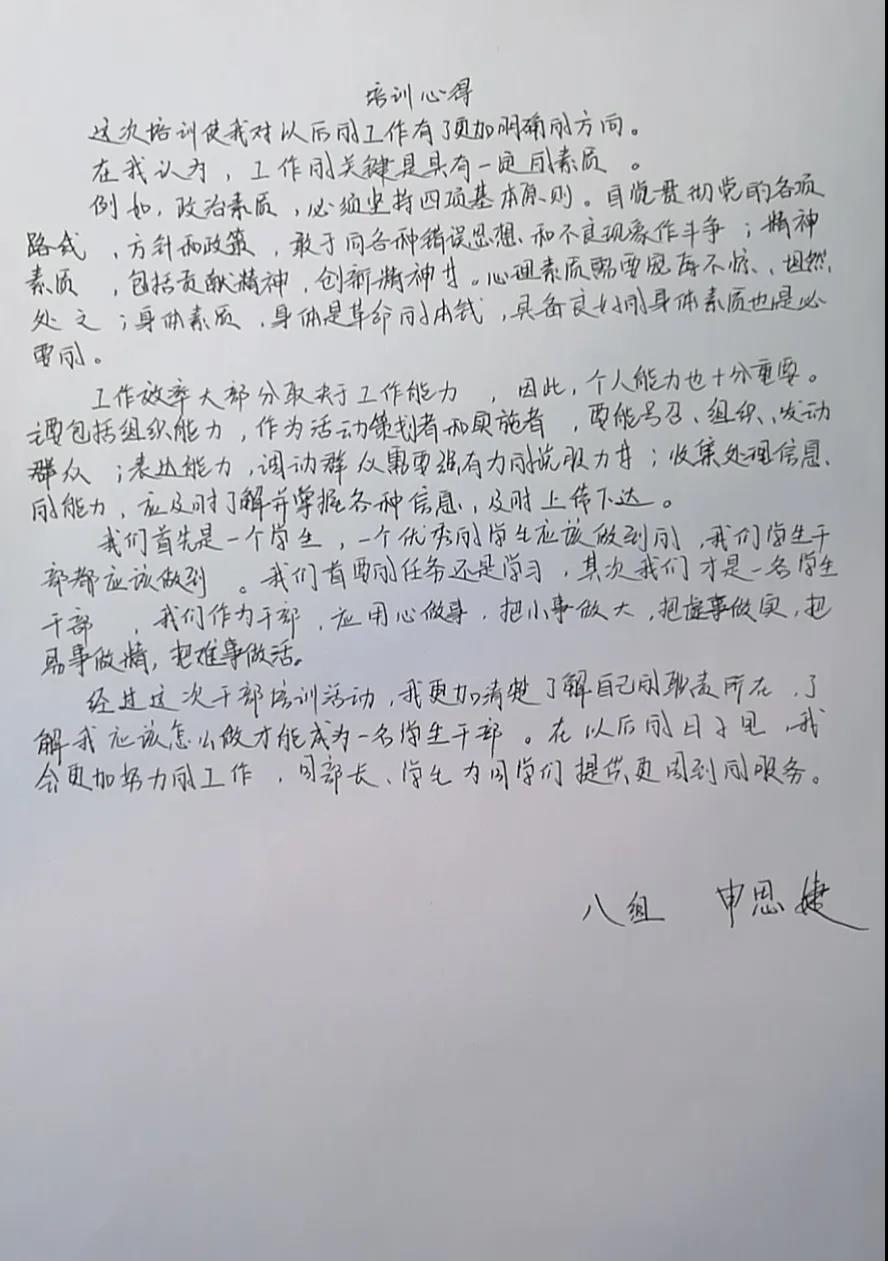 培训心得
这次培训使我对以后的工作有了更加明确的方向。
在我认为，工作的关键是具有一定的素质。
例如，政治素质，必须坚持四项基本原则。自觉贯彻党的各项
路线、方针和政策，敢于同各种错误思想、和不良现象作斗争；精神
素质，包括贡献精神，创新精神等。心理素质需要宠辱不惊、坦然
处之；身体素质，身体是革命的本钱，具备良好的身体素质也是必
要的。
工作效率大部分取决于工作能力，因此，个人能力也十分重要。
主要包括组织能力，作为活动策划者和实施者，要能号召、组织、发动
群众；表达能力，调动群众需要强有力的说服力等；收集处理信息
的能力，应及时了解并掌握各种信息，及时上传下达。
我们首先是一个学生，一个优秀的学生应该做到的，我们学生干
部都应该做到。我们首要的任务还是学习，其次我们才是一名学生
干部，我们作为干部，应用心做事，把小事做大，把虚事做实，把
易事做精，把难事做活。
经过这次干部培训活动，我更加清楚了解自己的职责所在，了
解我应该怎么做才能成为一名学生干部。在以后的日子里，我
会更加努力的工作，同部长、学生为同学们提供更周到的服务。
八组 申思婕